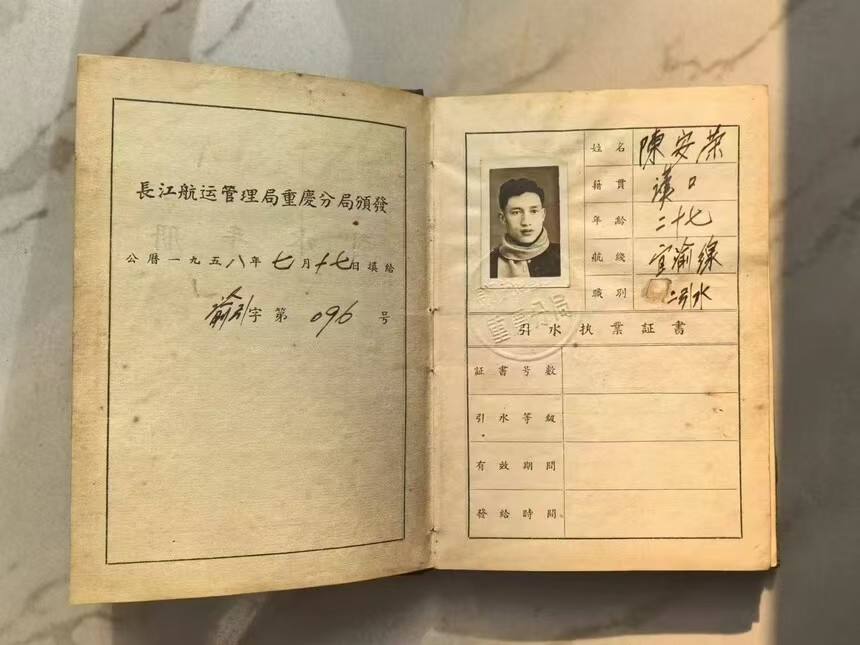 長江航运管理局重慶分局頒發
公曆一九五八年七月十七日填給
渝引字第096号
姓名 陳安荣
籍貫 漢口
年齡 二十七
航綫 宜渝線
職別 二引水
引水执業証書
証書号數
引水等級
有效期間
發給時間